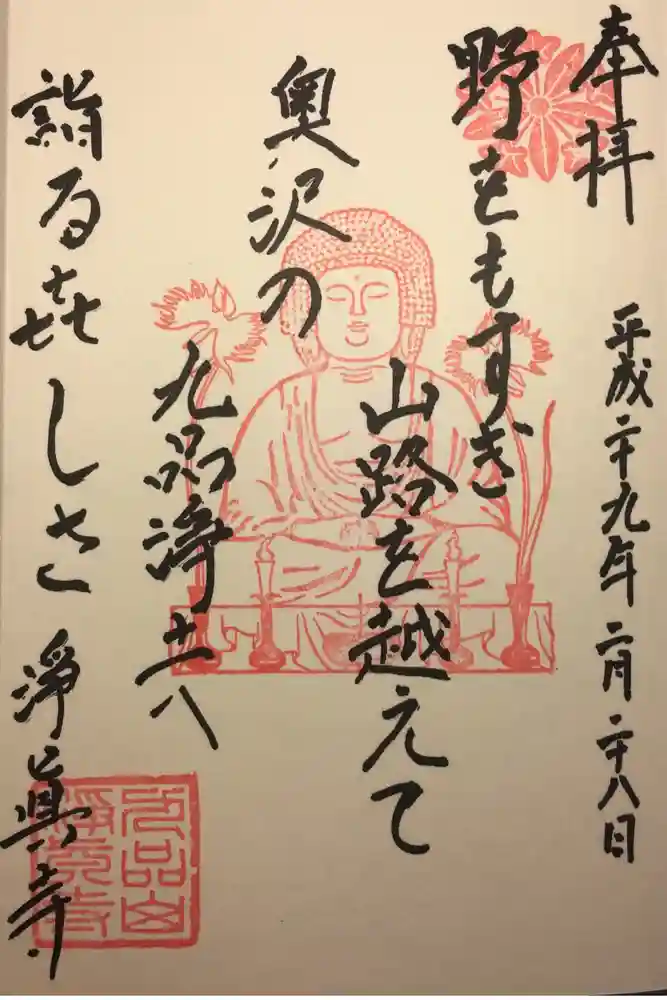 奉拝 平成二十九年二月二十八日
野をもすぎ
山路を越えて
奥沢の
九品浄土へ
詣る㐂しさ 淨眞寺
九品山
淨眞寺